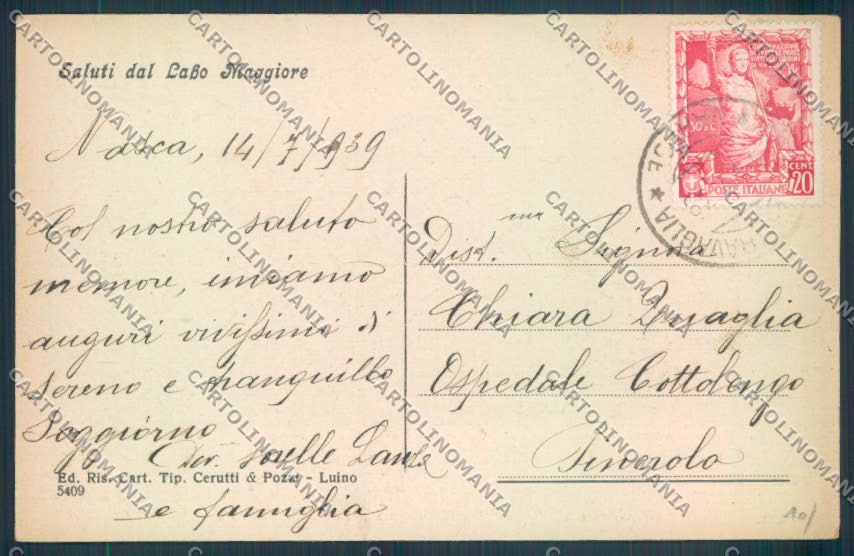 Saluti dal Lago Maggiore
Nasca, 14/7/939
Col nostro saluto
memore, inviamo
auguri vivissimi di
sereno e tranquillo
soggiorno
Dev. sorelle
e famiglia
Dist.ma Signora
Chiara Quaglia
Ospedale Cottolengo
Pinerolo
Ed. Ris. Cart. Tip. Cerutti & Pozzi - Luino
5409
POSTE ITALIANE
CENT. 20
CARTOLINOMANIA